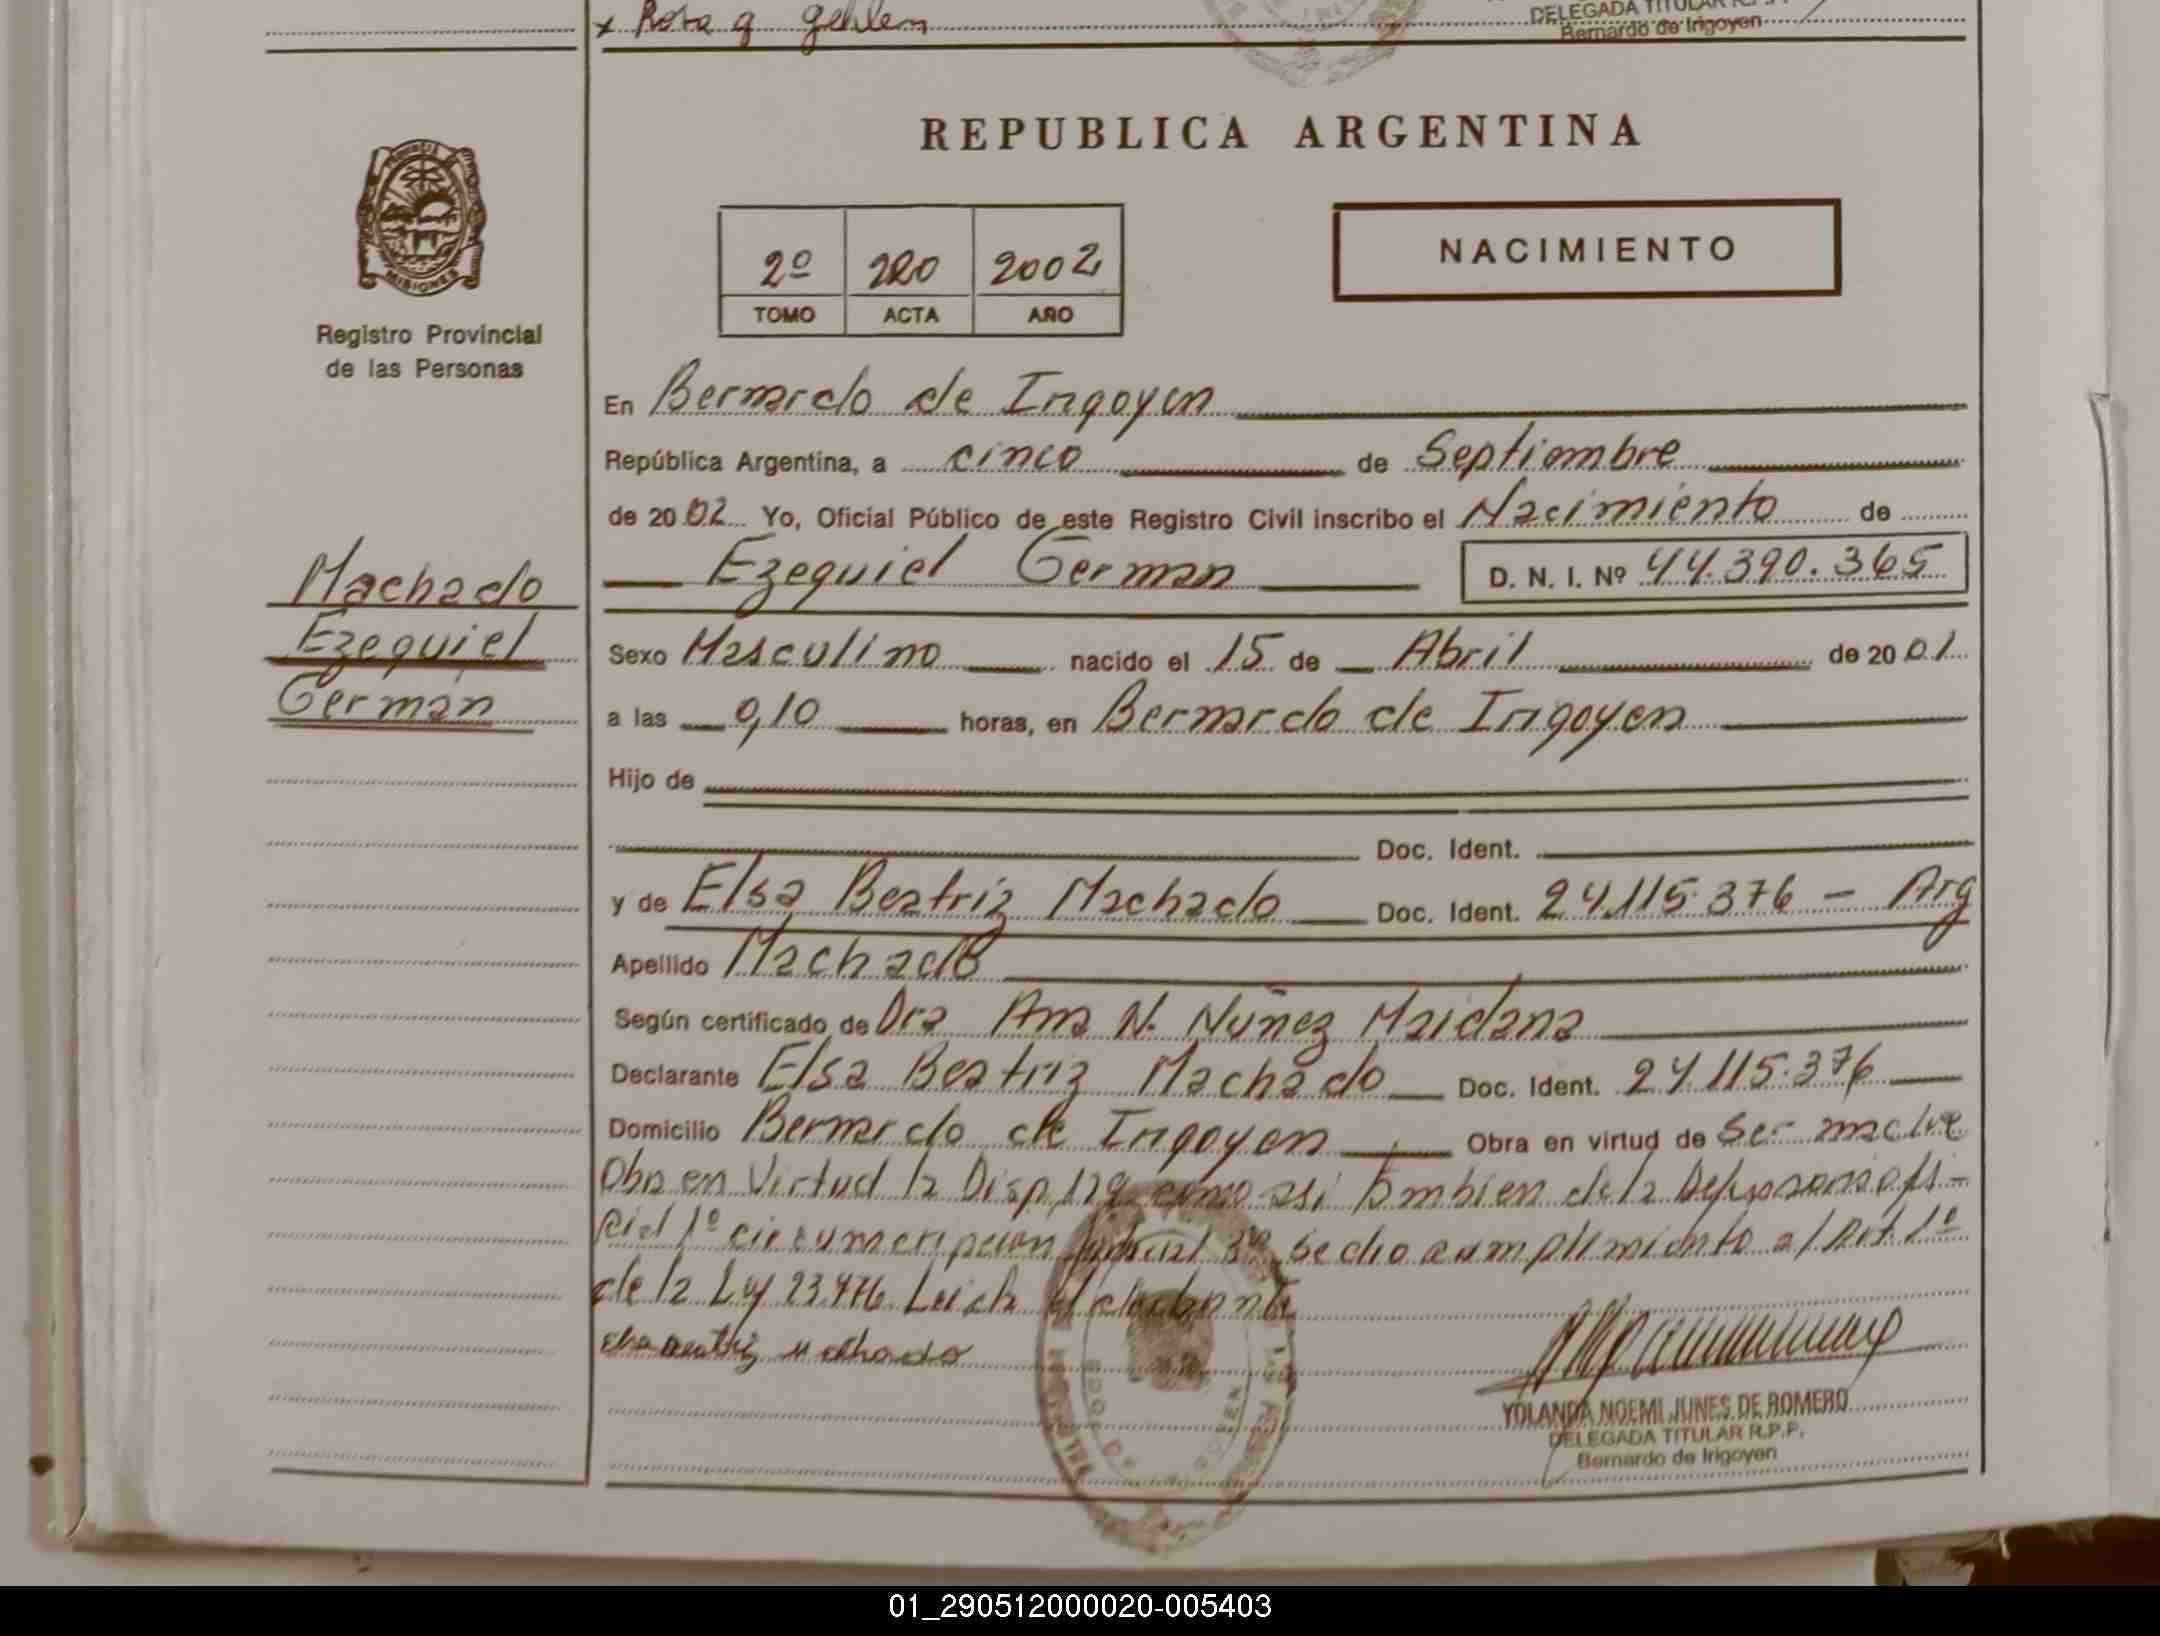 x Rosa g gehlen
DELEGADA TITULAR R.P.P.
Bernardo de Irigoyen
REPUBLICA ARGENTINA
MISIONES
Registro Provincial
de las Personas
2º 220 2002
TOMO ACTA AÑO
NACIMIENTO
En Bernardo de Irigoyen
República Argentina, a cinco de Septiembre
de 2002 Yo, Oficial Público de este Registro Civil inscribo el Nacimiento de
Ezequiel German D. N. I. Nº 44.390.365
Machado
Ezequiel
German
Sexo Masculino nacido el 15 de Abril de 2001
a las 0,10 horas, en Bernardo de Irigoyen
Hijo de
Doc. Ident.
y de Elsa Beatriz Machado Doc. Ident. 24.115.376 - Arg
Apellido Machado
Según certificado de Dra Ana N. Nuñez Maidana
Declarante Elsa Beatriz Machado Doc. Ident. 24.115.376
Domicilio Bernardo de Irigoyen Obra en virtud de ser madre
Obra en Virtud la Disp, 129 como asi tambien de la ofi-
cial 1º circunscripcion se dio cumplimiento al Art. 1º
de la Ley 23.476 Leida el
Elsa Beatriz Machado
YOLANDA NOEMI JUNES DE ROMERO
DELEGADA TITULAR R.P.P.
Bernardo de Irigoyen
01_290512000020-005403